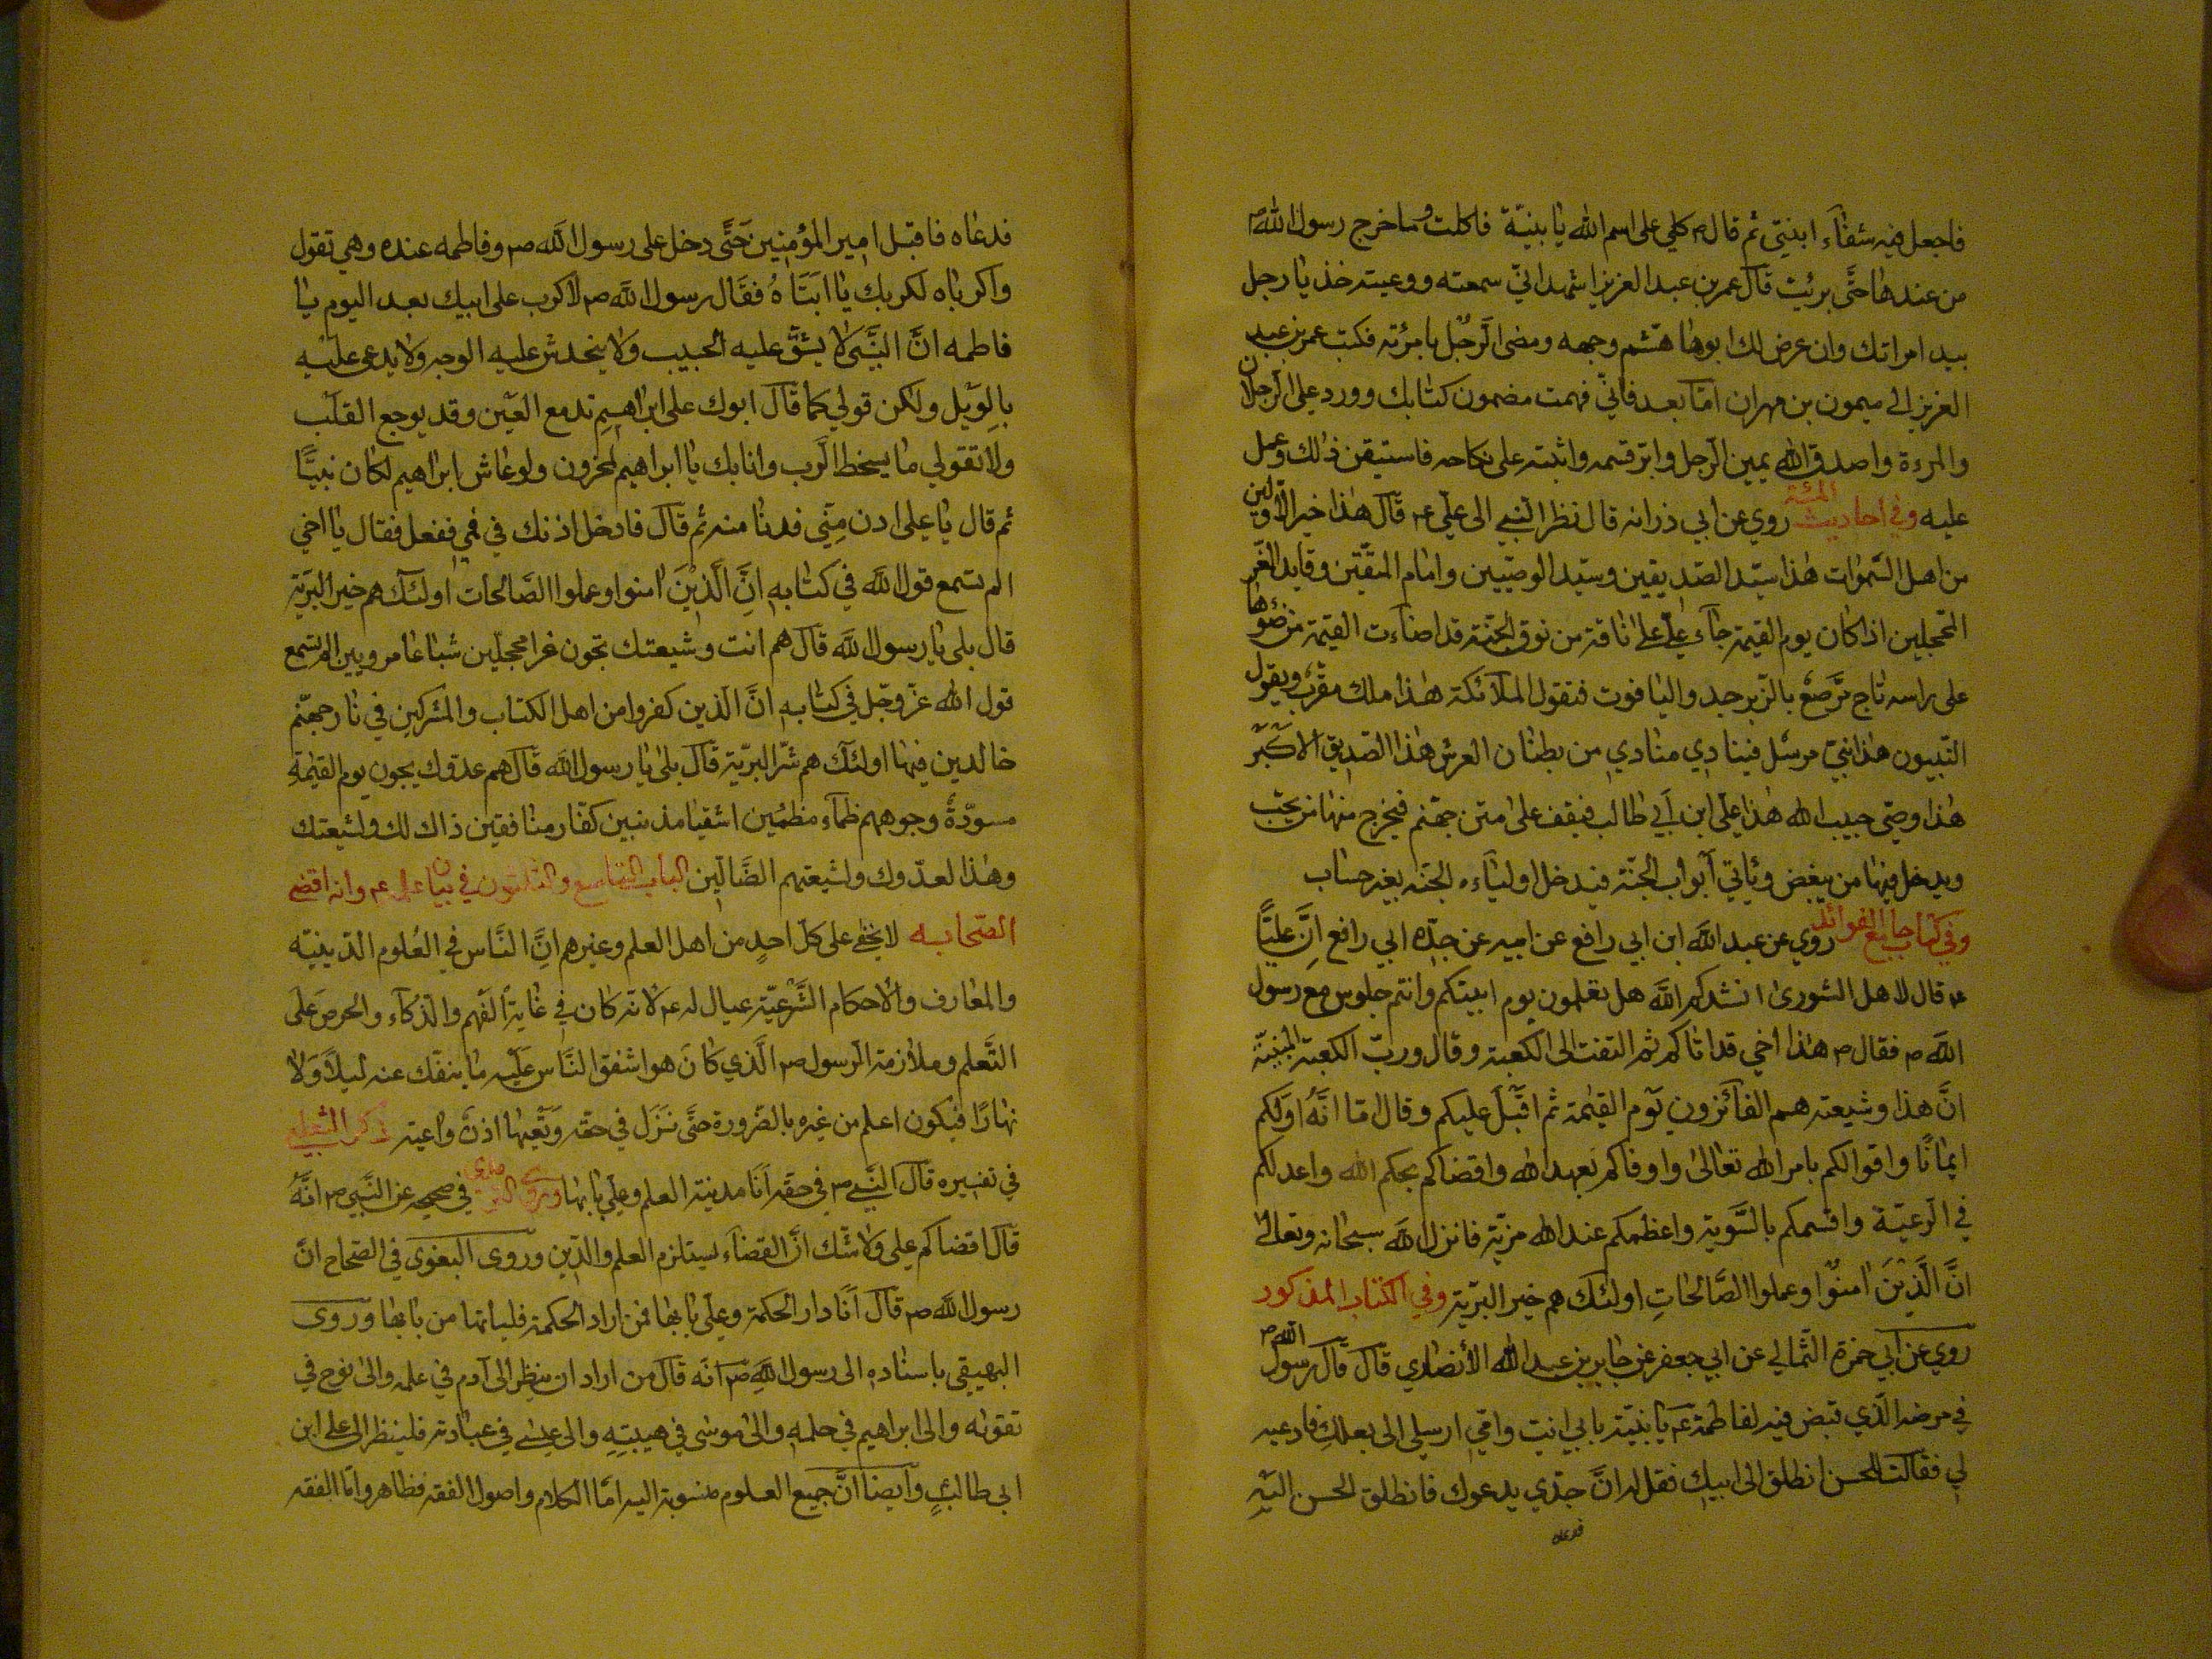 فاجعل فيه شفآء ابنتي ثم قال ص كلي على اسم الله يا بنيّة فاكلت وما خرج رسول الله ص
من عندها حتَّى برئت قال عمر بن عبد العزيز اشهد انّي سمعته ووعيته خذ يا رجل
بيد امراتك وان عرض لك ابوها هشم وجهه ومضى الرّجل بامرئته فكتب عمر بن عبد
العزيز الى ميمون بن مهران امّا بعد فانّي فهمت مضمون كتابك وورد علي الرّجلان
والمرءة واصدق الله يمين الرّجل وابرّ قسمه واثبته على نكاحه فاستيقن ذالك وعمل
عليه وفي احاديث المئة روي عن ابي ذر انه قال نظر النبي الى علي ع قال هذا خير الاوّلين
من اهل السّموات هذا سيّد الصّديقين وسيّد الوصيّين وامام المتّقين وقايد الغّر
المحجلين اذا كان يوم القيمة جآء علي على ناقة من نوق الجنّة قد اضاءت القيمة من ضوئها
على راسه تاج مرّصع بالزّبرجد والياقوت فتقول الملآئكة هذا ملك مقرّب ويقول
النّبيون هذا نبيّ مرسل فينادي منادي من بطنان العرش هذا الصّديق الاكبر
هذا وصيّ حبيب الله هذا علي ابن أبي طالب فيقف على متن جهنم فيخرج منها من يحّب
ويدخل فيها من يبغض وياتي أبواب الجنّة فيدخل اوليآءه الجنّه بغير حساب
وفي كتاب جامع الفوائد روي عن عبد الله ابن ابي رافع عن ابيه عن جدّه ابي رافع انَّ عليًّا
ع قال لاهل الشورى انشدكم الله هل تعلمون يوم ابيتكم وانتم جلوس مع رسول
الله ص فقال ص هذا اخي قد اتاكم ثم التفت الى الكعبة وقال وربّ الكعبة المبنيّة
انَّ هذا وشيعته هم الفآئزون يوم القيمة ثم اقبل عليكم وقال امّا انّه اوّلكم
ايمانًا واقوالكم بامر الله تعالى واوفاكم بعهد الله واقضاكم بحكم الله واعدلكم
في الرّعيّة واقسمكم بالسّوية واعظمكم عند الله مزيّة فانزل الله سبحانه وتعالى
انَّ الَّذينَ امنُوا وعملوا الصَّالحاتِ اولئك هم خير البريّة وفي الكتاب المذكور
روي عن ابي حمزة الثّمالي عن ابي جعفر عن جابر بن عبد الله الأنصاري قال قال رسول الله ص
في مرضه الّذي قبض فيه لفاطمة ع يا بنيّة بابي انت وامّي ارسلي الى بعلك فادعيه
لي فقالت للحسن انطلق الى ابيك فقل له انَّ جدّي يدعوك فانطلق الحسن اليه
فدعاه
فدعاه فاقبل امير المؤمنين حَتَّى دخل على رسول الله ص وفاطمه عنده وهي تقول
واكرباه لكربك يا ابتاهُ فقال رسول الله ص لا كرب على ابيك بعد اليوم يا
فاطمه انَّ النَّبي لا يشقّ عليه الجيب ولا يخدش عليه الوجه ولا يدعى عليه
بالويل ولكن قولي كما قال ابوك على ابراهيم تدمع العين وقد يوجع القلب
ولا تقولي ما يسخط الرّب وانا بك يا ابراهيم لمحزون ولو عاش ابراهيم لكان نبيًّا
ثم قال يا علي ادن منّي فدنا منه ثم قال فادخل اذنك في فمي ففعل فقال يا اخي
الم تسمع قول الله في كتابه انَّ الَّذينَ امنوا وعملوا الصَّالحات اولئك هم خير البريّة
قال بلى يا رسول الله قال هم انت وشيعتك تجون غرا محجلين شباعا مرويين الم تسمع
قول الله عزّ وجّل في كتابه انَّ الّذين كفروا من اهل الكتاب والمشركين في نار جهنّم
خالدين فيها اولئك هم شرّ البريّة قال بلى يا رسول الله قال هم عدوّك يجون يوم القيمة
مسودّةً وجوههم ظمآء مظمئين اشقيا مذنبين كفّار منافقين ذاك لك ولشيعتك
وهذا لعدّوك ولشيعتهم الضّالّين الباب التاسع والثلاثون في بيان علمه ع وانه اقضى
الصّحابه لا يخفى على كلّ احدٍ من اهل العلم وغيرهم انّ النَّاس في العُلوم الدّينيّة
والمعارف والأحكام الشَّرعيّة عيال له ع لانّه كان في غاية الفهم والذّكآء والحرص على
التَّعلم وملازمة الرّسول ص الَّذي كانَ هو اشفق النَّاس عَليه ما ينفّك عنه ليلاً ولا
نهارًا فيكون اعلم من غيره بالضّرورة حتَّى نَزَل في حقّه وتَعيها اذنٌ واعية ذكر الثعلبي
في تفسيره قال النّبي ص في حقّه أنا مدينة العلم وعلي بابها وروى الترمذي في صحيحه عن النَّبي ص انَّهُ
قال اقضاكم علي ولا شك انَّ القضآء يستلزم العلم والدّين وروى البغوى في الصّحاح انَّ
رسول الله ص قال أنا دار الحكمة وعلي بابها فمن اراد الحكمة فلياتها من بابها وروى
البهيقي باسناده الى رسول الله ص انّه قال من اراد ان ينظر الى آدم في علمه والى نوح في
تقوئه والى ابراهيم في حلمه والى موسى في هيبتهِ والى عيسى في عبادته فلينظر الى علي ابن
ابي طالبٍ وايضًا انَّ جميع العلوم منسوبة اليه امّا الكلام واصول الفقه فظاهر وامّا الفقه